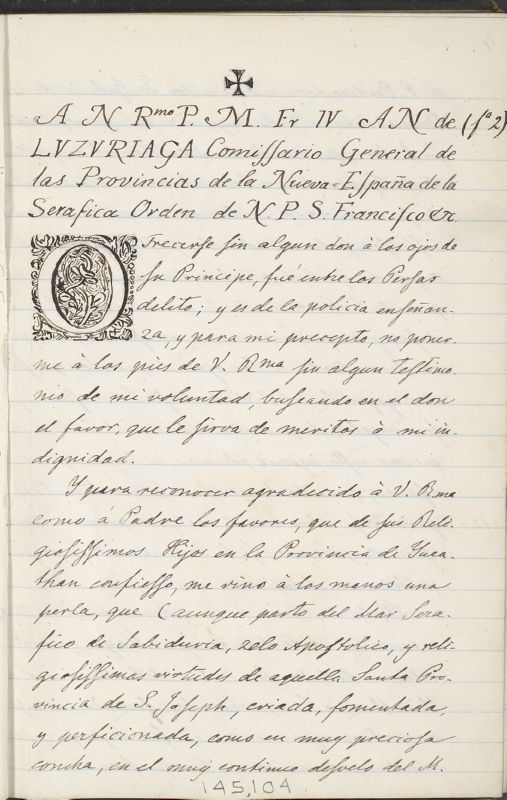 A N Rmo P. M. Fr IV AN de (fa 2)
LVZVRIAGA Comiſſario General de
las Provincias de la Nueva-Eſpaña de la
Serafica Orden de N. P. S. Franciſco &c.
OFrecerſe ſin algun don à los ojos de
ſu Principe, fué entre los Perſas
delito; y es de la policia enſeñan-
za, y para mi precepto, no poner-
me à los pies de V. Rma ſin algun teſtimo-
nio de mi voluntad, buſcando en el don
el favor, que le ſirva de meritos à mi in-
dignidad.
Y para reconocer agradecido à V. Rma
como á Padre los favores, que de ſus Reli-
gioſiſſimos Hijos en la Provincia de Yuca-
than confieſſo, me vino à las manos una
perla, que (aunque parto del Mar Sera-
fico de Sabiduria, zelo Apoſtolico, y reli-
gioſiſſimas virtudes de aquella Santa Pro-
vincia de S. Joſeph, criada, fomentada,
y perficionada, como en muy precioſa
concha, en el muy continuo deſvelo del M.
145,104